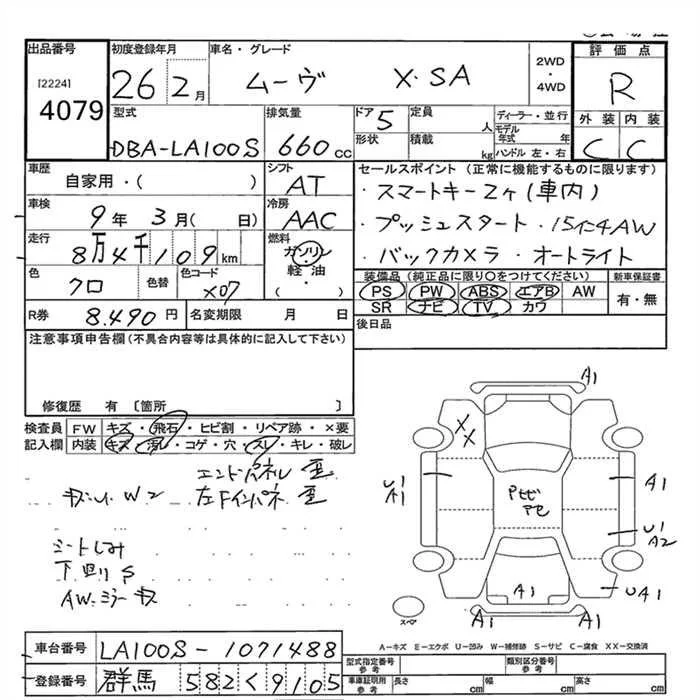 出品番号 初度登録年月 車名・グレード 2WD・4WD 評価点
[2224] 4079 26 2月 ムーヴ X・SA R
型式 排気量 ドア 5 定員 人 ディーラー・並行 外装 内装
DBA-LA100S 660cc 形状 積載 kg モデル年式 年 ハンドル 左・右 C C
車歴 シフト セールスポイント (正常に機能するものに限ります)
自家用・( ) AT ・スマートキー2ヶ(車内)
車検 冷房
9年 3月( 日) AAC ・プッシュスタート・15インチAW
走行 燃料
8万4千109km ガソリン ・バックカメラ・オートライト
色 色替 色コード 軽油 装備品(純正品に限り○をつけてください) 新車保証書
クロ X07 ・( ) PS PW ABS エアB AW 有・無
SR ナビ TV カワ
R券 8.490円 名変期限 月 日 後日品
注意事項申告欄(不具合内容等は具体的に記入して下さい)
修復歴 有 〔箇所 〕
検査員 FW キズ・飛石・ヒビ割・リペア跡・×要
記入欄 内装 キズ・汚レ・コゲ・穴・スレ・キレ・破レ
エンドパネル 歪
W2 左Fインパネ 歪
シートしみ
下回りS
AWミラーキズ
A1
XX
U1 A1
A1
U1 A2
UA1
A1
A1 A1
スペア
A-キズ E-エクボ U-凹み W-補修跡 S-サビ C-腐食 XX-交換済
車台番号 LA100S-1071488 型式指定番号 参考 類別区分番号 参考
登録番号 群馬 582く9105 車庫証明用 参考 長さ cm 幅 cm 高さ cm